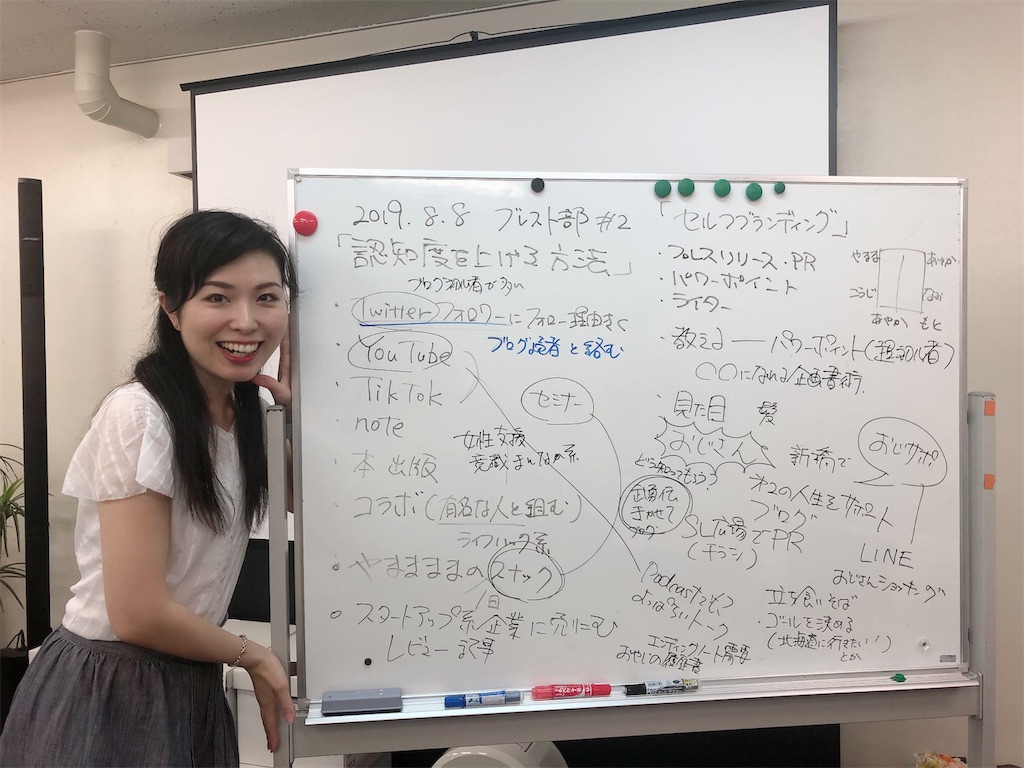 2019.8.8 ブレスト部 #2
「認知度を上げる方法」
ブログ初心者が多い
・Twitterフォロワーにフォロー理由きく
ブログ読者と絡む
・YouTube
・TikTok
・note
・本 出版
・コラボ(有名な人と組む)
ライフハック系
・やまままのスナック
一日
○スタートアップ系企業に売りこむ
レビュー記事
セミナー
女性支援
意識まんなか系
「セルフブランディング」
・プレスリリース・PR
・パワーポイント
・ライター
やまま
あやか
こうじ
なお
あやか もと
・教える ― パワーポイント(超初心者)
○○になれる企画書術
・見た目 髪
おじさん
どう知ってもらう?
新橋で
おじサポ
オレの人生をサポート
ブログ
SL広場でPR
(チラシ)
LINE
おじさんショッキング
Podcast
よっぱらいトーク
エンディングノート需要
おやじの履歴書
・立ち食いそば
・ゴールを決める
(北海道に行きたい!)
とか